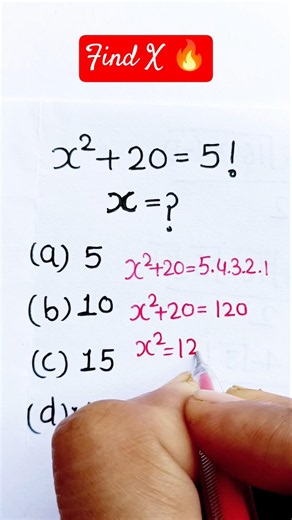 Find X 🔥
x²+20=5!
x=?
(a) 5
x²+20=5.4.3.2.1
(b) 10
x²+20=120
(c) 15
x²=12
(d)